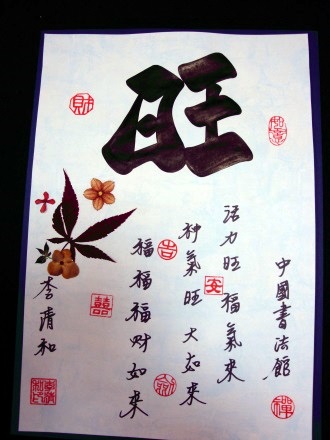 旺
中國書法館
活力旺 福氣來
神氣旺 大如來
福福福財如來
李清和
財
吉
安
囍
禪